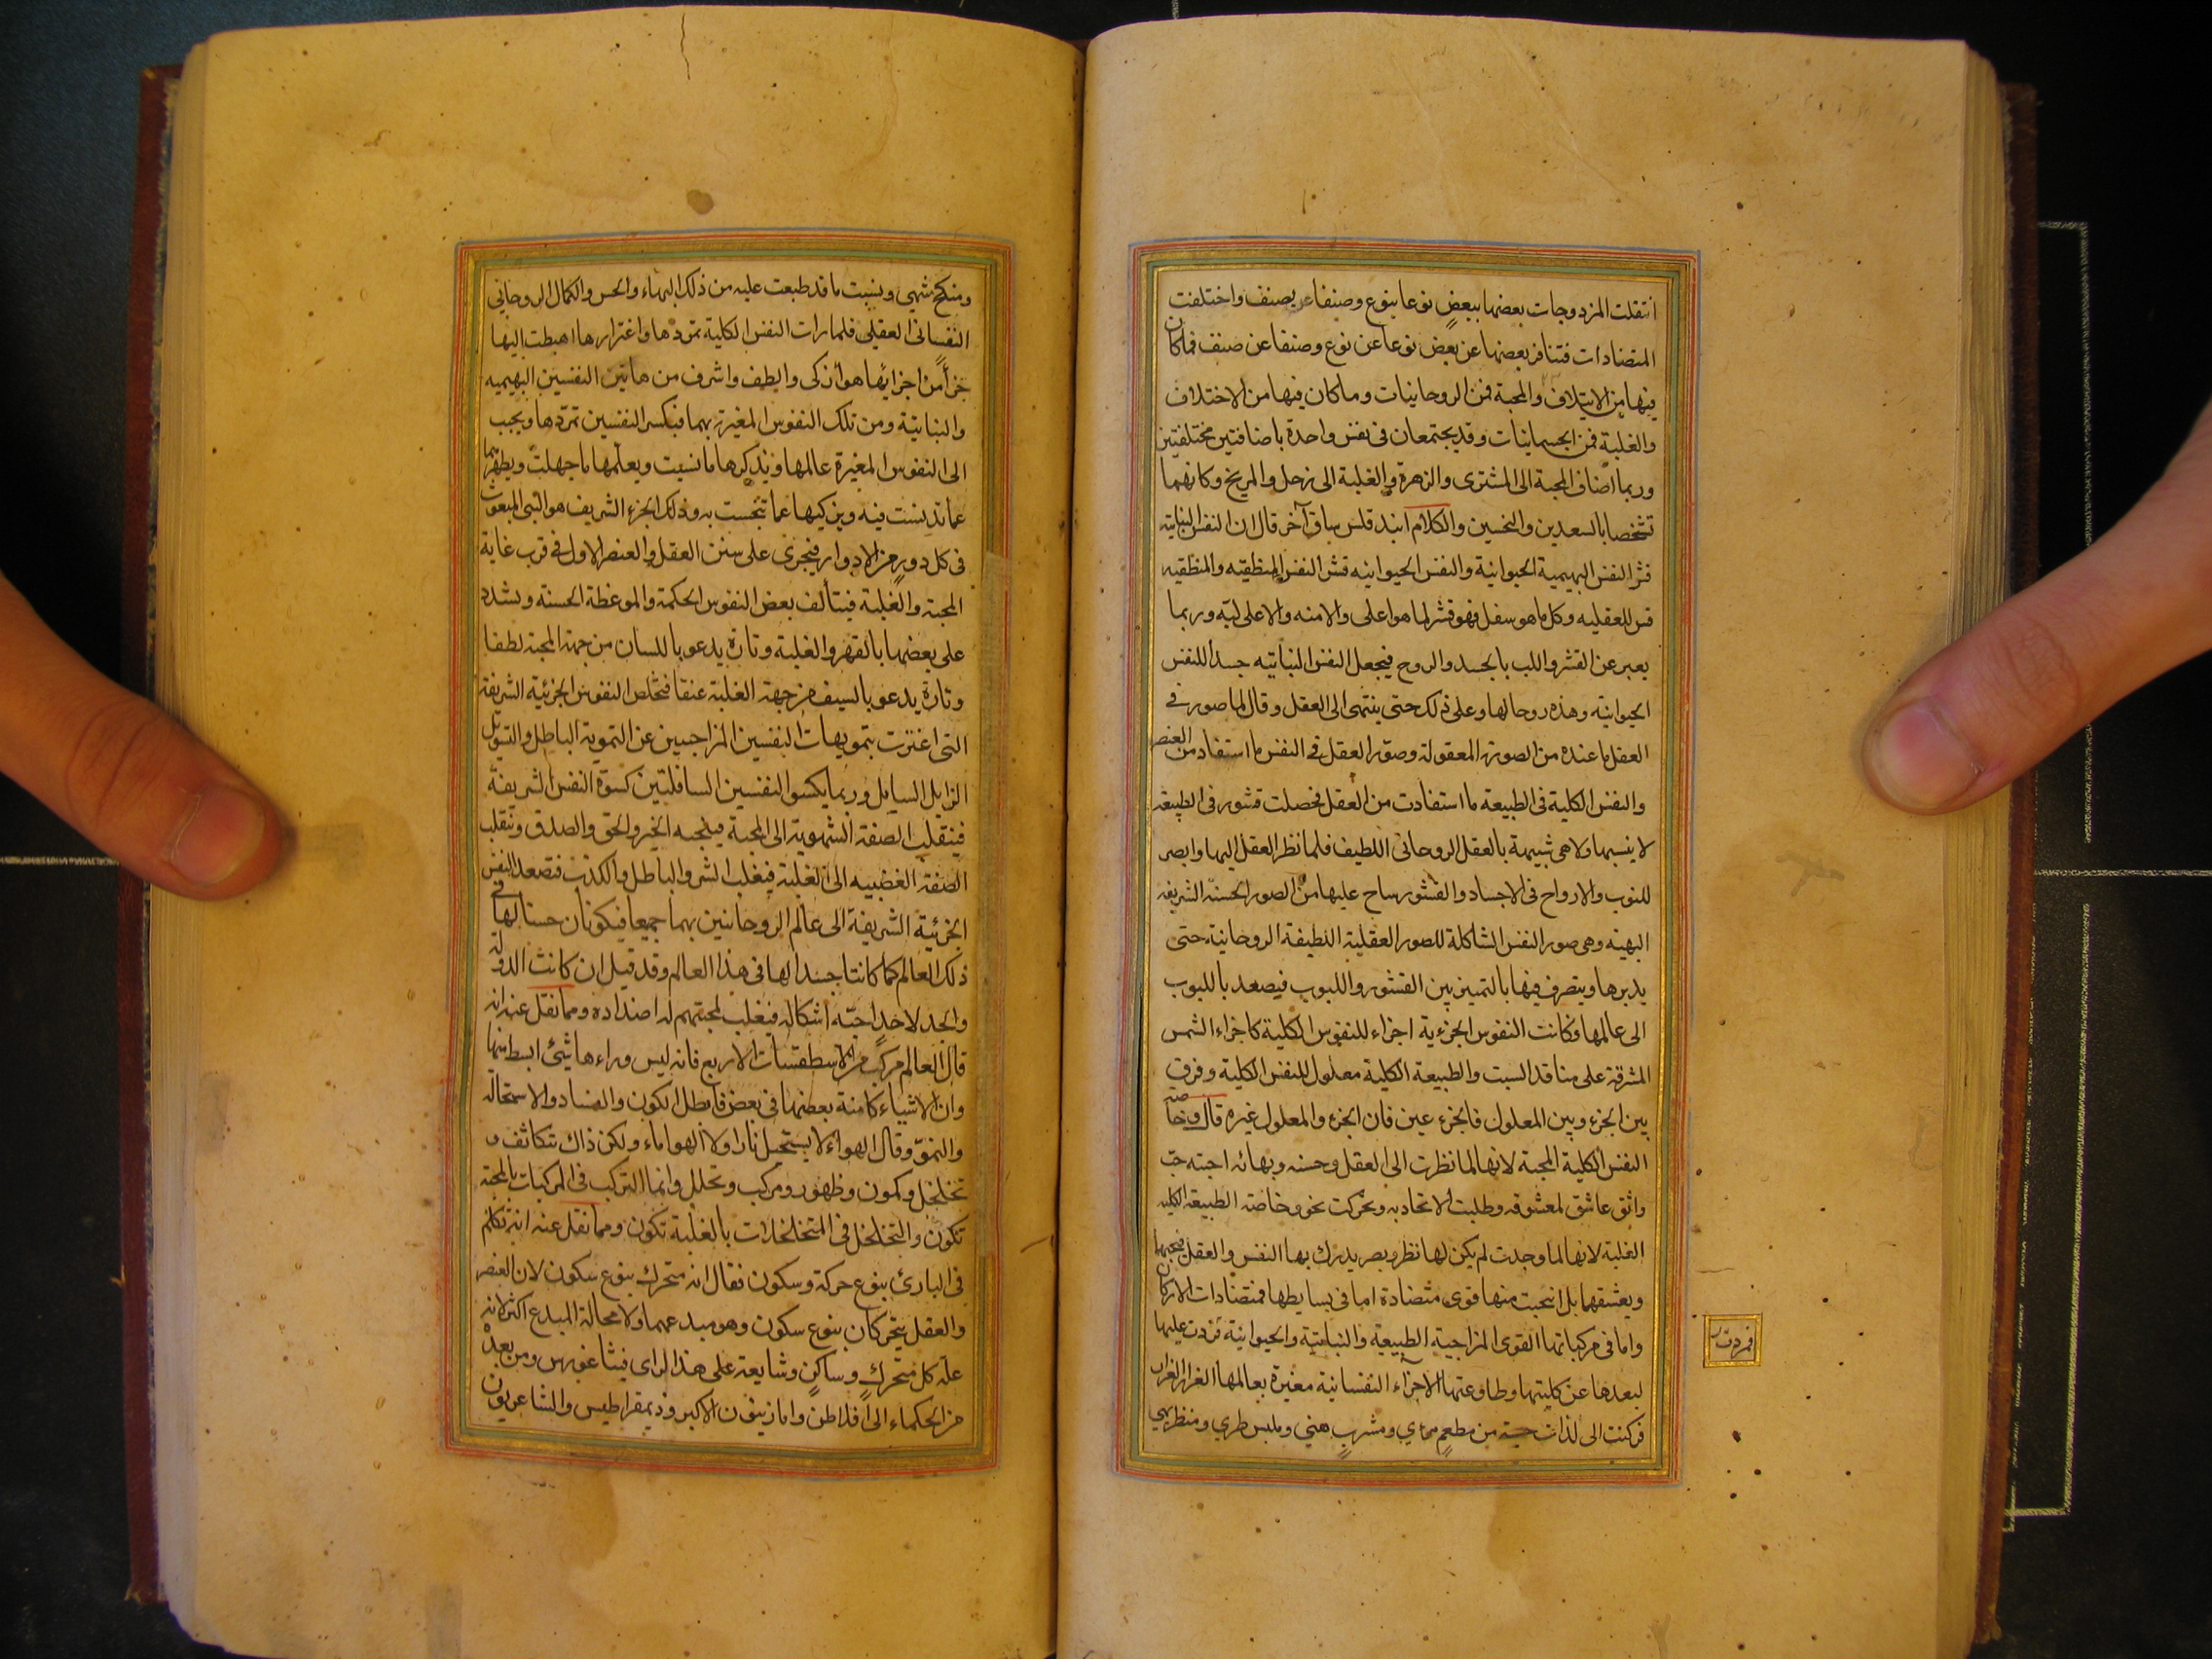 انتقلت المزدوجات بعضها ببعض نوعا بنوع وصنفا بصنف واختلفت
المتضادات فتنافر بعضها عن بعض نوعا عن نوع وصنفا عن صنف فما كان
فيها من الايتلاف والمحبة فمن الروحانيات وما كان فيها من الاختلاف
والغلبة فمن الجسمانيات وقد يجتمعان فى نفس واحدة باضافتين مختلفتين
وربما اضاف المحبة الى المشترى والزهرة والغلبة الى زحل والمريخ وكانهما
تشخصا بالسعدين والنحسين والكلام انبدقلس ساق آخر قال ان النفس النباتية
قشر النفس البهيمية الحيوانية والنفس الحيوانيه قشر النفس المنطقيه والمنطقيه
قشر للعقليه وكل ما هو سفل فهو قشر لما هو اعلى والاعلى لبه وربما
يعبر عن القشر واللب بالجسد والروح فيجعل النفس النباتيه جسدا للنفس
الحيوانيه وهذه روحا لها وعلى ذلك حتى ينتهى الى العقل وقال لما صور فى
العقل ما عنده من الصورة المعقولة وصور العقل فى النفس ما استفاد من العنصر
والنفس الكلية فى الطبيعة ما استفادت من العقل فحصلت قشور فى الطبيعة
لا يشبهها ولا هى شبيهة بالعقل الروحانى اللطيف فلما نظر العقل اليها وابصر
للبوب والارواح فى الاجساد والقشور ساح عليها من الصور الحسنة الشريفه
البهيه وهى صور النفس الشاكلة للصور العقلية اللطيفة الروحانية حتى
يدبرها ويتصرف فيها بالتمييز بين القشور واللبوب فيصعد باللبوب
الى عالمها وكانت النفوس الجزءية اجزاء للنفوس الكلية كاجزاء الشمس
المشرقة على منافذ البيت والطبيعة الكلية معلول للنفس الكلية وفرق
بين الجزء وبين المعلول فالجزء عين فان الجزء والمعلول غيره قال وخاصة
النفس الكلية المحبة لانها لما نظرت الى العقل وحسنه وبهائه احبته حب
واثق عاشق لمعشوقه وطلبت الاتحاد به وتحركت نحوه وخاصة الطبيعة الكليه
الغلبة لانها لما وجدت لم يكن لها نظر وبصر يدرك بها النفس والعقل فيحبها
ويعشقهما بل انبجست منها قوى متضادة اما فى بسايطها فمتضادات الاركان
واما فى مركباتها القوى المزاجية الطبيعية والنباتية والحيوانية فردت عليها
لبعدها عن كليتها وطاوعتها الاجزاء النفسانية مغترة بعالمها الغرار الغدار
فركنت الى لذات حسية من مطعم مرى ومشرب هنى وملبس طرى ومنظر بهى
فمردت
ومنكح شهى ونسيت ما قد طبعت عليه من ذلك البهاء والحسن والكمال الروحانى
النفسانى العقلى فلما رات النفس الكلية تمردها واغترارها اهبطت اليها
جزأ من اجزائها هو ازكى والطف واشرف من هاتين النفسين البهيميه
والنباتية ومن تلك النفوس المغترة بهما فيكسر النفسين تمردها ويحبب
الى النفوس المغترة عالمها ويذكرها ما نسيت ويعلمها ما جهلت ويطهرها
عما تدنست فيه ويزكيها عما تنجست به وذلك الجزء الشريف هو النبى المبعوث
فى كل دور من الادوار فيجرى على سنن العقل والعنصر الاول فى قرب غاية
المحبة والغلبة فيتألف بعض النفوس الحكمة والموعظة الحسنة ويشدد
على بعضها بالقهر والغلبة وتارة يدعو باللسان من جهة المحبة لطفا
وتارة يدعو بالسيف من جهة الغلبة عنفا فيخلص النفوس الجزئية الشريفة
التى اغترت بتمويهات النفسين المزاجيين عن التمويه الباطل والتسويل
الزايل السايل وربما يكسو النفسين السافلتين كسوة النفس الشريفة
فينقلب الصفة الشهوية الى المحبة فيحبه الخير والحق والصدق وتنقلب
الصفة الغضبيه الى الغلبة فيغلب الشر والباطل والكذب فتصعد النفس
الجزئية الشريفة الى عالم الروحانيين بهما جميعا فيكونان جسدا لها فى
ذلك العالم كما كانتا جسدا لها فى هذا العالم وقد قيل ان كانت الدولة
والجد لاحد احبه اشكاله فيغلب لمحبتهم له اضداده ومما نقل عنه انه
قال العالم مركب من الاسطقسات الاربع فانه ليس وراءها شئ ابسط منها
وان الاشياء كامنة بعضها فى بعض فابطل الكون والفساد والاستحالة
والنمو وقال الهواء لا يستحيل نارا ولا الهوا ماء ولكن ذاك تتكاثف و
تخلخل وكمون وظهور ومركب وتحلل وانما التركيب فى المركبات بالمحبة
تكون والتخلخل فى المتخلخلات بالغلبة تكون ومما نقل عنه انه تكلم
فى البارئ بنوع حركة وسكون فقال انه متحرك بنوع سكون لان العنصر
والعقل يتحركان بنوع سكون وهو مبدعهما ولا محالة المبدع اكثر لانه
علة كل متحرك وساكن وشايعه على هذا الراى فيثاغورس ومن بعده
من الحكماء الى افلاطن واما زينون الاكبر وذيمقراطيس والشاعريون